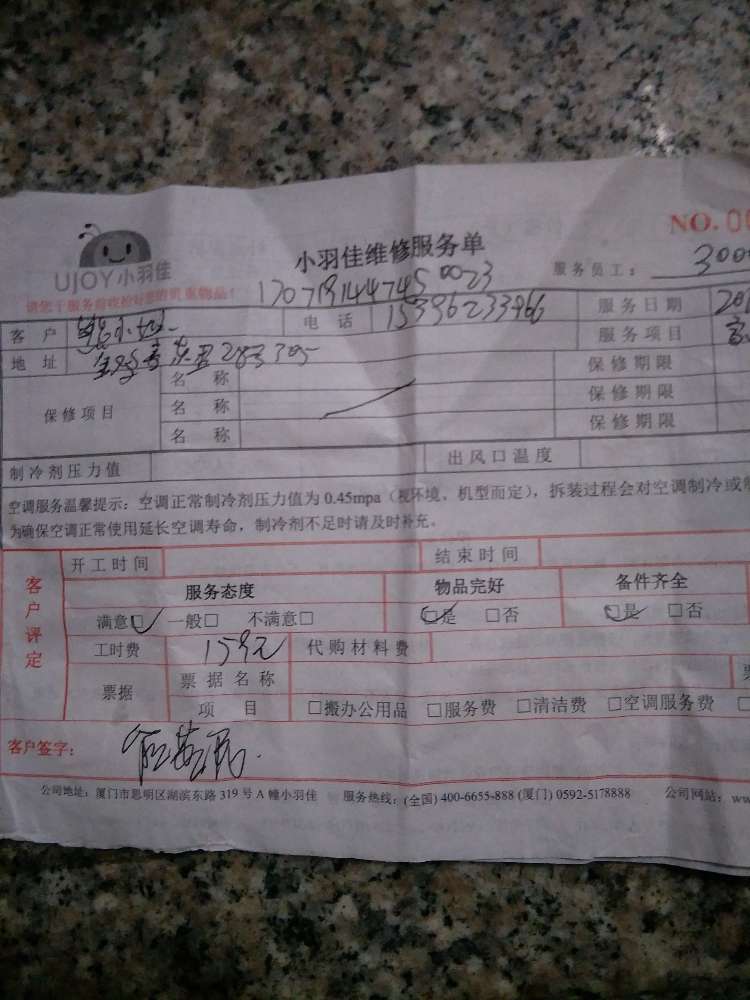 NO.00
UJOY小羽佳
小羽佳维修服务单
请您于服务前收捡好您的贵重物品！
服务员工：300
17071914474500023
客户 小 电话 15396233966 服务日期 201
地址 283 305 服务项目
保修项目 名称 保修期限
名称 保修期限
名称 保修期限
制冷剂压力值 出风口温度
空调服务温馨提示：空调正常制冷剂压力值为0.45mpa（视环境、机型而定），拆装过程会对空调制冷或
为确保空调正常使用延长空调寿命，制冷剂不足时请及时补充。
客户评定
开工时间 结束时间
服务态度 物品完好 备件齐全
满意☑ 一般□ 不满意□ ☑是 □否 ☑是 □否
工时费 159元 代购材料费
票据 票据名称
项目 □搬办公用品 □服务费 □清洁费 □空调服务费 □
客户签字：
公司地址：厦门市思明区湖滨东路319号A幢小羽佳 服务热线：(全国) 400-6655-888 (厦门) 0592-5178888 公司网站：ww